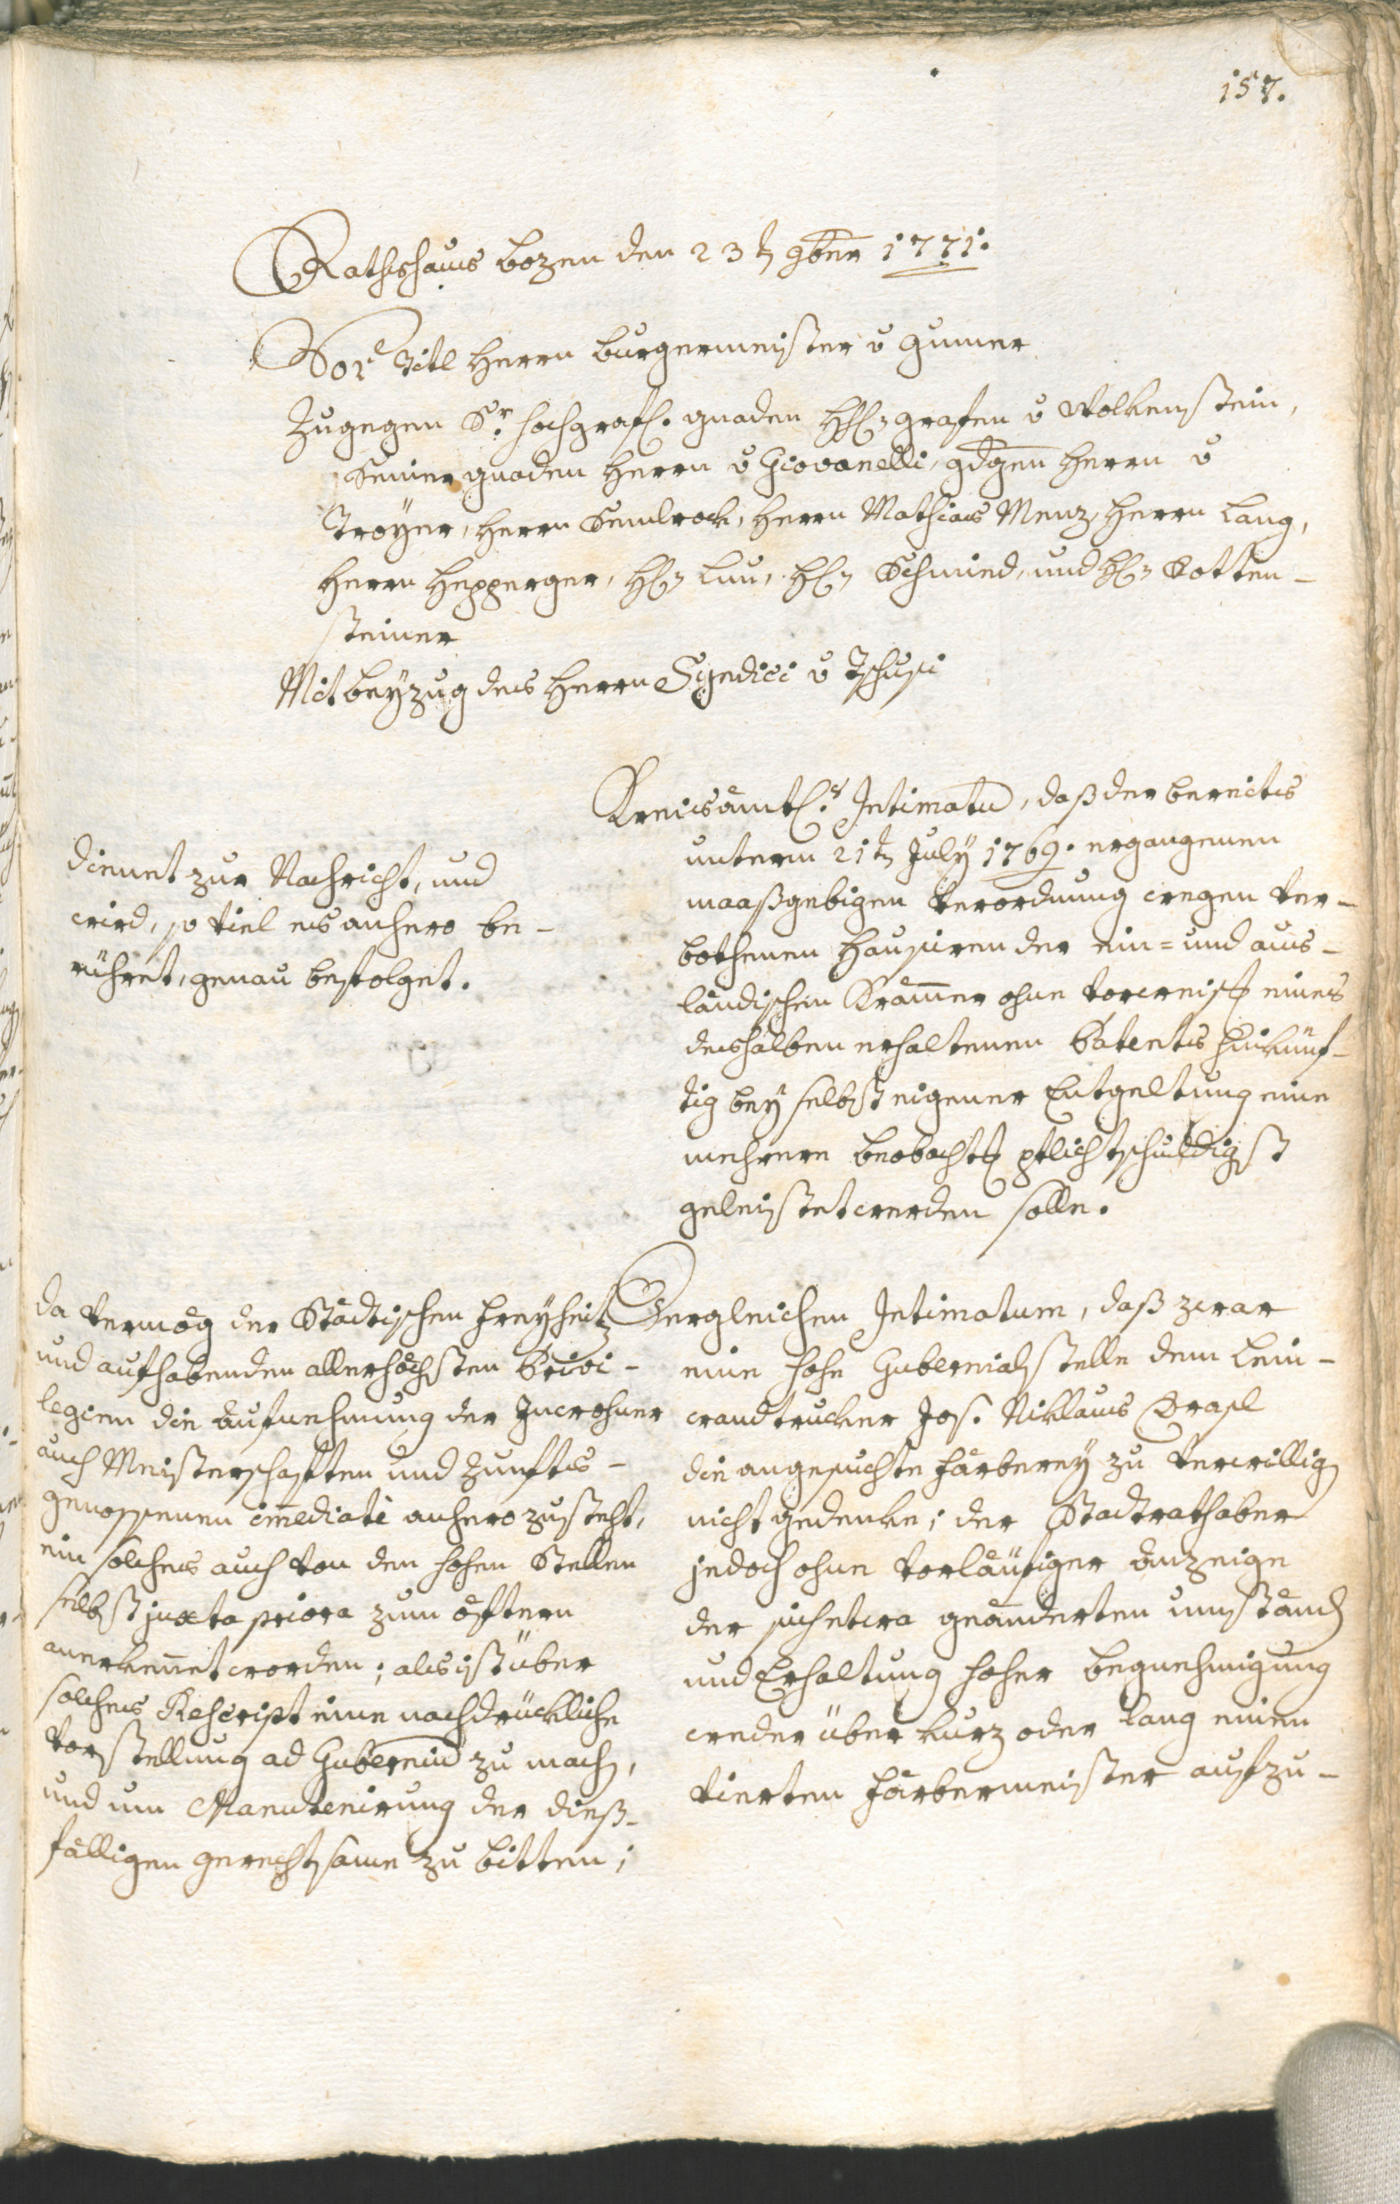 157.
Rathshaus Bozen den 23t 9ber 1771.
Vor Titl Herrn Burgermeister v Gumer
Zugegen Sr hochgräfl. Gnaden H Grafen v Wolkenstein,
Seiner Gnaden Herrn v Giovanelli, gdgen Herrn v
Troyer, Herrn Semlrock, Herrn Mathias Menz, Herrn Lang,
Herrn Hepperger, H Lun, H Schmied, und H Rotten-
steiner
Mit beyzug des Herrn Syndici v Tschusi
dienet zur Nachricht, und
wird, so viel es anhero be-
rühret, genau befolget.
Kreisämtl.s Intimatu, daß der bereits
unterm 21t July 1769. ergangenen
maaßgebigen Verordnung wegen ver-
bothenen Hausiren der ein= und aus-
ländischen Kramer ohne vorweisg eines
deshalben erhaltenen Patents hinkünf-
tig bey selbst eigener Entgeltung eine
mehrere beobachtg pflichtschuldigst
geleistet werden solle.
da vermög der Städtischen Freyheit
und aufhabenden allerhöchsten Privi-
legien die Aufnehmung der Inwohner
auch Meisterschafften und Zunfts-
genossenen imediate anhero zusteht,
ein solches auch von den hohen Stellen
selbst juxta priora zum öftern
anerkennet worden; als ist über
solches Rescript eine nachdrückliche
Vorstellung ad Guberniu zu mach,
und um Manutenirung der dieß-
fälligen gerechtsame zu bitten;
Dergleichen Intimatum, daß zwar
eine hohe Gubernialstelle dem Lein-
wandtrucker Jos. Niklaus Grasl
die angesuchte Färberey zu verwillig
nicht gedenke; der Stadtrath aber
jedoch ohne vorläufiger Anzeige
der sich etwa geänderten umständ
und Erhaltung hoher begnehmigung
weder über kurz oder lang einen
vierten Färbermeister aufzu-